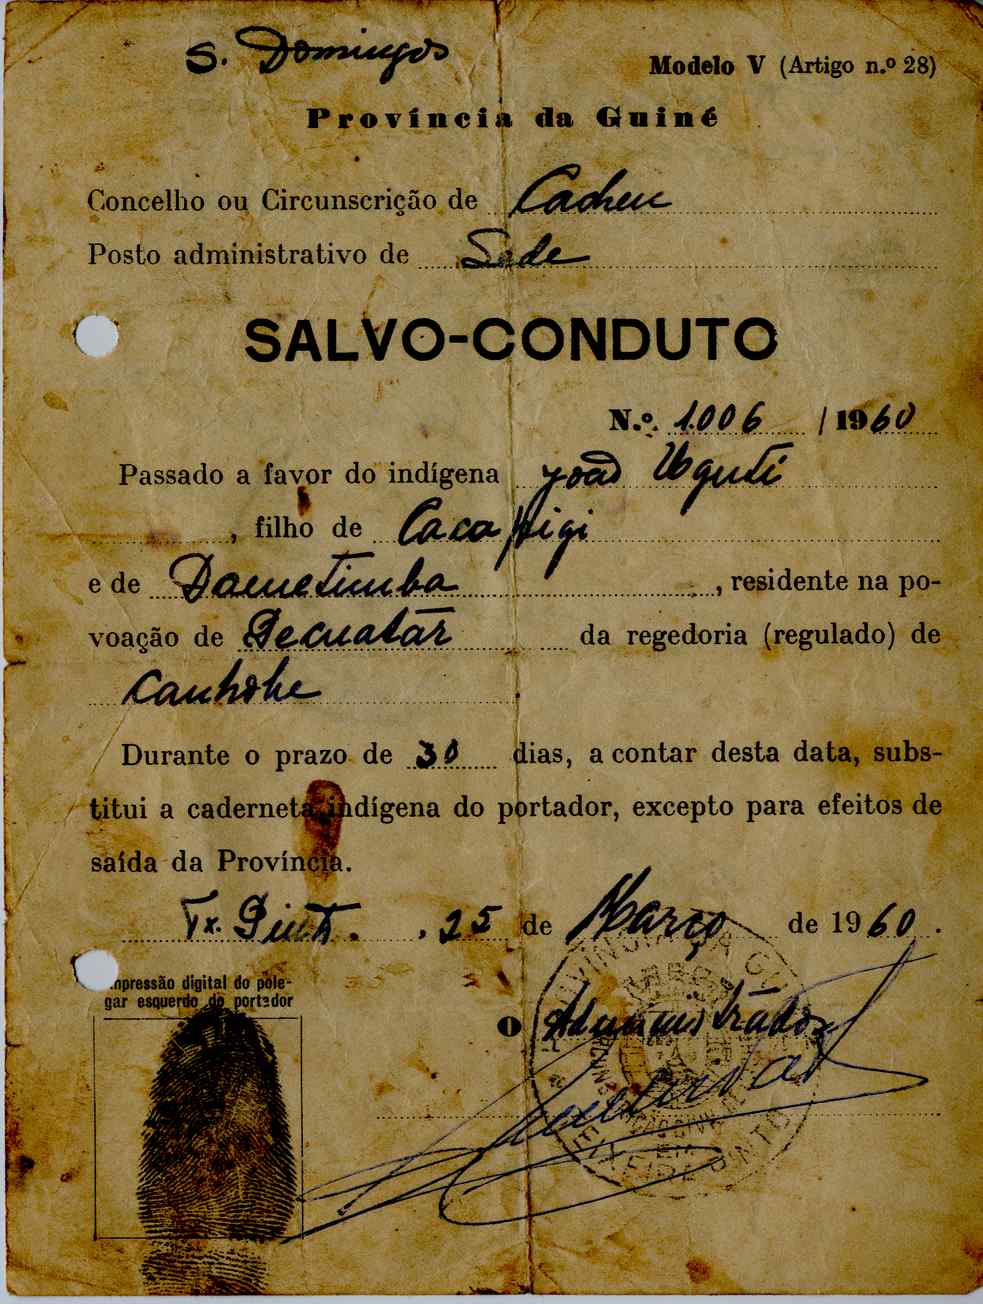 S. Domingos
Modelo V (Artigo n.º 28)
Província da Guiné
Concelho ou Circunscrição de Cacheu
Posto administrativo de Sede
SALVO-CONDUTO
N.º 1.006 / 1960
Passado a favor do indígena João Uguti
, filho de Caca Pigi
e de Dametimba, residente na po-
voação de Decuatar da regedoria (regulado) de
Canhobe
Durante o prazo de 30 dias, a contar desta data, subs-
titui a caderneta indígena do portador, excepto para efeitos de
saída da Província.
Tx. Pintº. , 25 de Março de 1960.
mpressão digital do pole-
gar esquerdo do portador
O Administrador